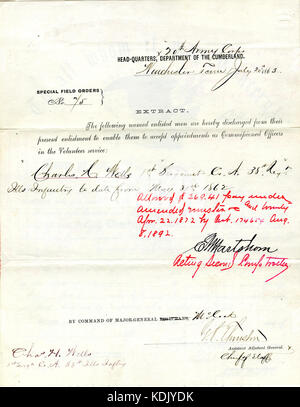 20th Army Corps
HEAD-QUARTERS, DEPARTMENT OF THE CUMBERLAND,
Winchester Tenn July 1863
SPECIAL FIELD ORDERS
No.
EXTRACT.
The following named enlisted men are hereby discharged from their
present enlistment to enable them to accept appointments as Commissioned Officers
in the Volunteer service:
Charles H. Wells 1st Sergeant Co. A. 35th Regt
Ills Infantry to date from 1862
Allowed $ 269.41 pay under
amended muster and bounty
Apr. 22. 1872 by
8. 1892.
Acting Second Comptroller
BY COMMAND OF MAJOR-GENERAL
Assistant Adjutant General.
Chief of Staff
Chas. H. Wells
1st Sergt Co. A. 35th Ills Infty
alamy
www.alamy.com
KDJYDK